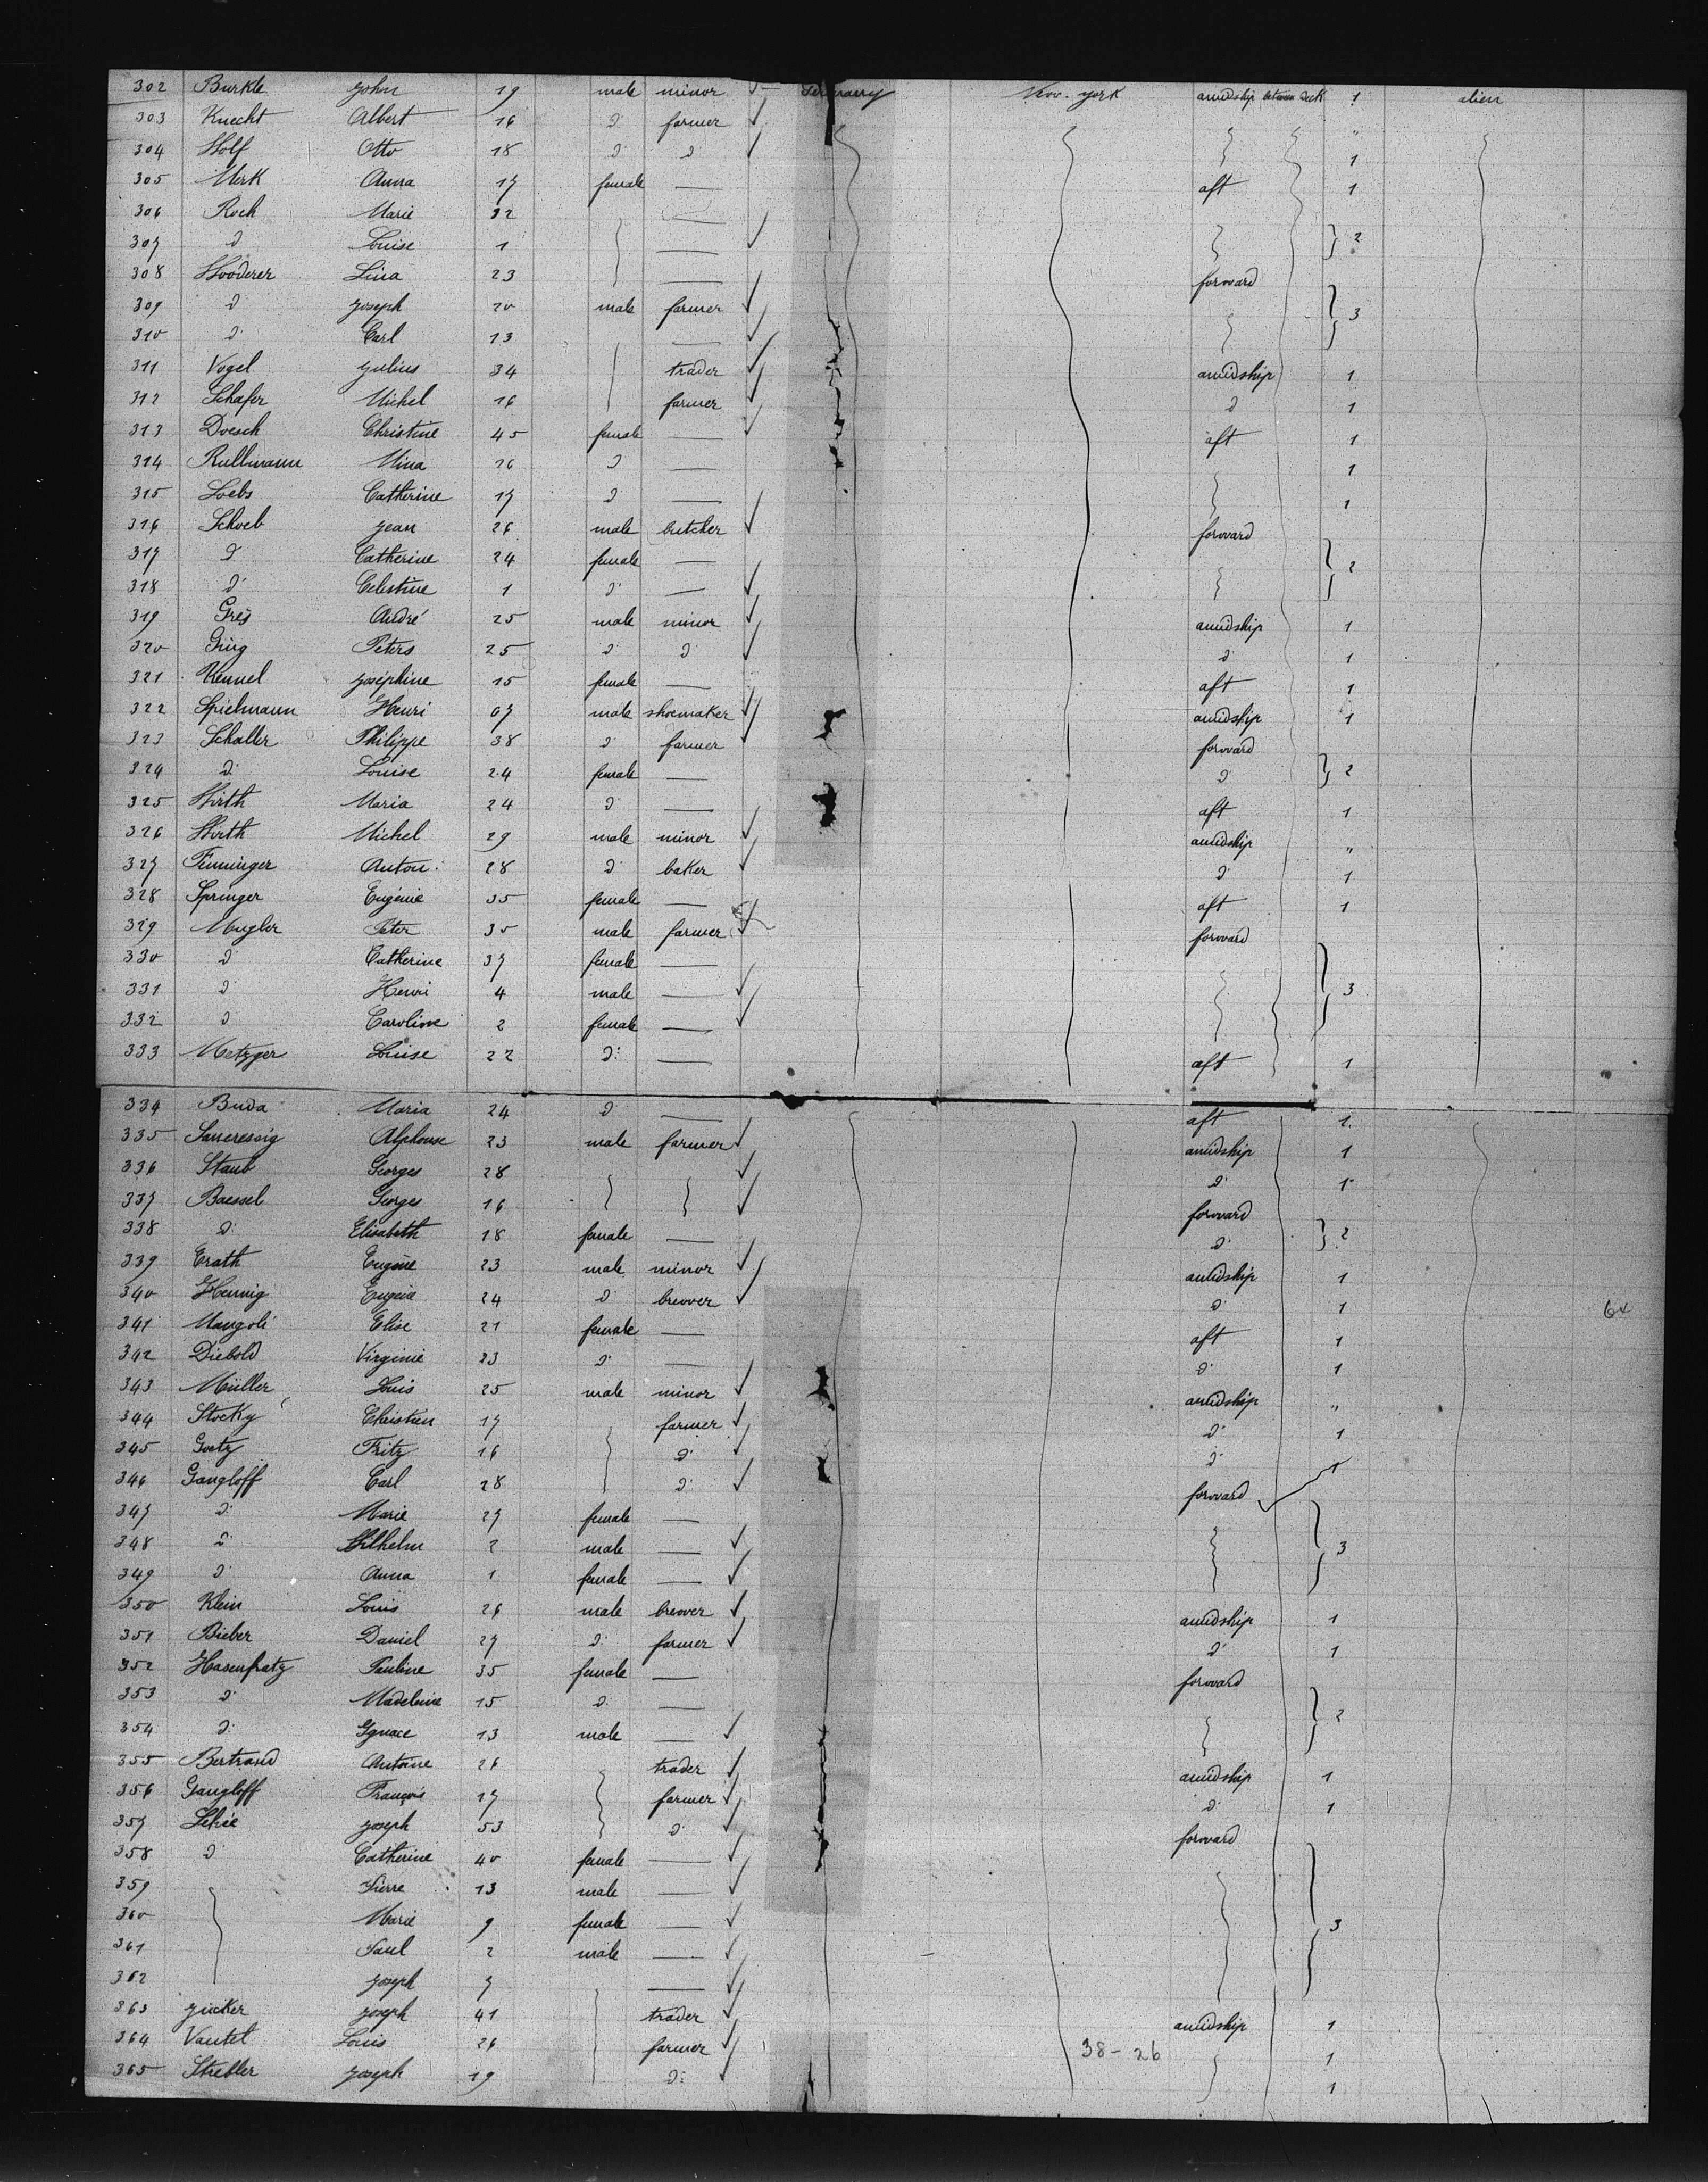 302 Burkle John 19 male minor Germany New-york amidship between deck 1 alien
303 Knecht Albert 16 d: farmer "
304 Wolf Otto 18 d: d: 1
305 Merk Anna 17 female — aft 1
306 Roch Marie 32 —
307 d Louise 1 — 2
308 Wooderer Lina 23 — forward
309 d Joseph 20 male farmer 3
310 d: Carl 13 —
311 Vogel Julius 34 trader amidship 1
312 Schafer Michel 16 farmer d 1
313 Doesch Christine 45 female — aft 1
314 Rullmann Mina 26 d — 1
315 Loebs Catherine 17 d — 1
316 Schoeb Jean 26 male butcher forward
317 d Catherine 24 female — 2
318 d: Celestine 1 d: —
319 Gres André 25 male minor amidship 1
320 Ging Peters 25 d: d: d: 1
321 Kennel Josephine 15 female — aft 1
322 Spielmann Henri 67 male shoemaker amidship 1
323 Schaller Philippe 38 d: farmer forward
324 d: Louise 24 female — d: 2
325 Wirth Maria 24 d: — aft 1
326 Wirth Michel 29 male minor amidship "
327 Anton: 28 d: baker d: 1
328 Springer Eugénie 35 female — aft 1
329 Mugler Peter 35 male farmer forward
330 d: Catherine 37 female —
331 d: Henri 4 male — 3
332 d Caroline 2 female —
333 Metzger Louise 22 d: — aft 1
334 Buda Maria 24 d — aft 1
335 Alphonse 23 male farmer amidship 1
336 Staub Georges 28 d: 1
337 Baessel Georges 16 forward
338 d: Elisabeth 18 female — d: 2
339 Erath Eugène 23 male minor amidship 1
340 Hennig Eugène 24 d: brewer d: 1
341 Mangoli Elise 21 female — aft 1
342 Diebold Virginie 23 d: — d: 1
343 Müller Louis 25 male minor amidship "
344 Stocky Christian 17 farmer d: 1
345 Goetz Fritz 16 d: d: 1
346 Gangloff Carl 28 d: forward
347 d: Marie 27 female —
348 d: Wilhelm 2 male — 3
349 d: Anna 1 female —
350 Klein Louis 26 male brewer amidship 1
351 Bieber Daniel 27 d: farmer d: 1
352 Hasenfratz Pauline 35 female — forward
353 d: Madeleine 15 d: — 2
354 d: Ignace 13 male —
355 Bertrand Antoine 26 trader amidship 1
356 Gangloff François 17 farmer d: 1
357 Joseph 53 d: forward
358 d Catherine 40 female —
359 Pierre 13 male —
360 Marie 9 female — 3
361 Paul 2 male —
362 Joseph 7 —
363 Jucker Joseph 41 trader amidship 1
364 Vautel Louis 26 farmer 38-26 1
365 Strebler Joseph 19 d: 1